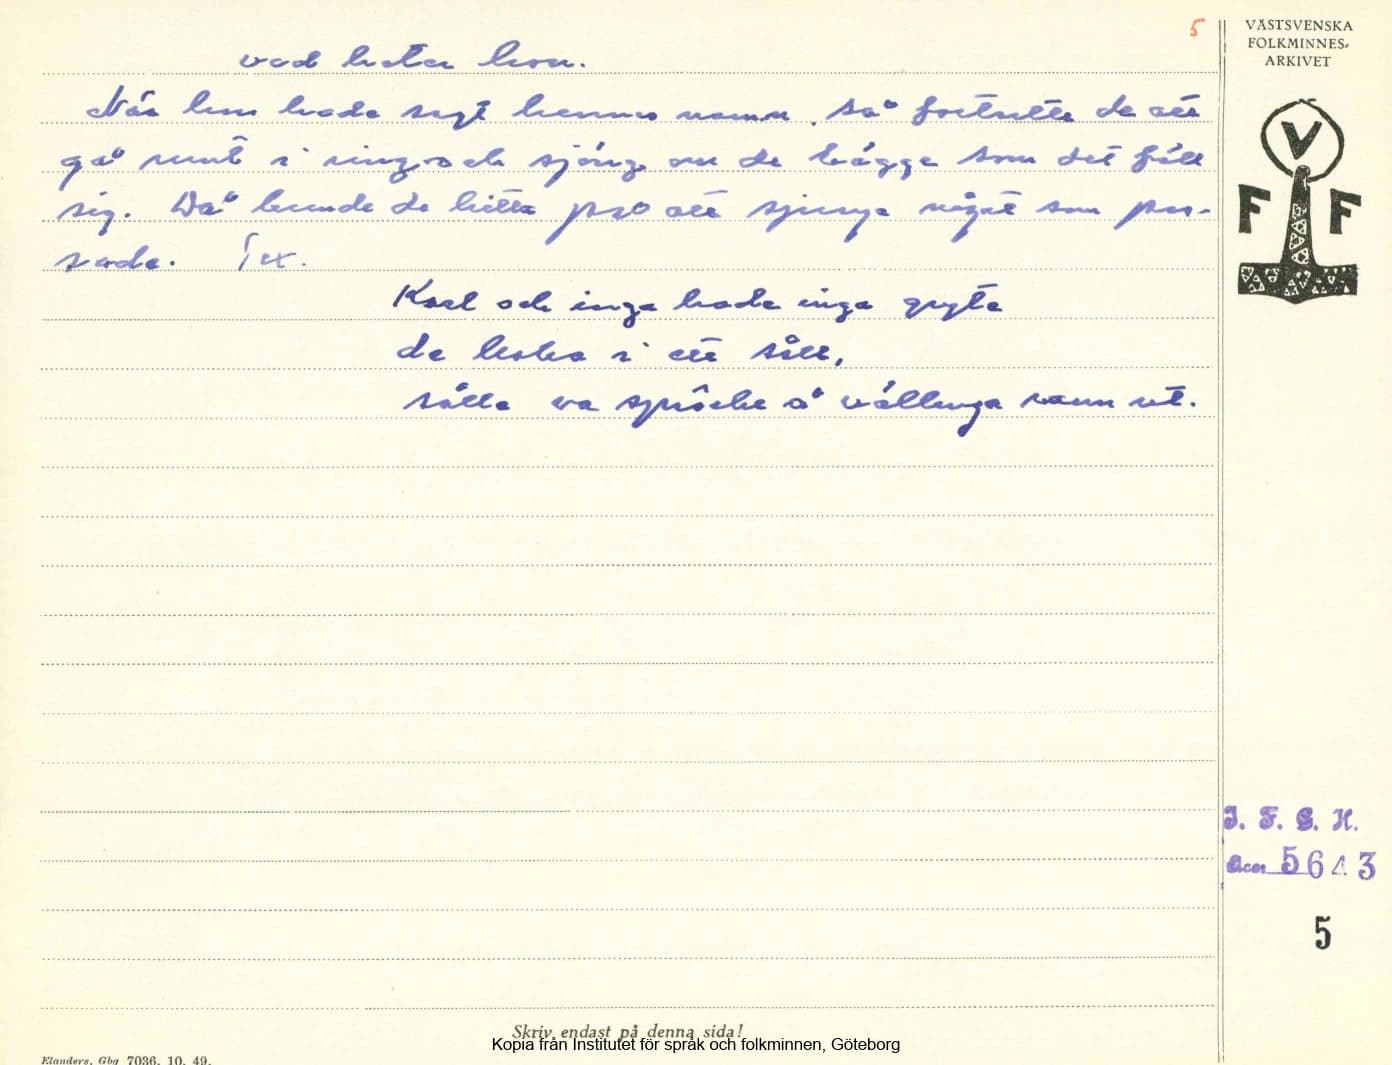 5
VÄSTSVENSKA
FOLKMINNES-
ARKIVET
V
F F
vad heter hon.
När han hade sagt hennes namn, så fortsatte de att
gå runt i ring och sjöng om de bägge som det föll
sig. Då kunde de hitta på att sjunga något som pas-
sade. T ex.
Karl och inga hade inga gryta
de koka i ett såll,
sålla va spräcke å vällinga rann ut.
I. F. G. H.
Acc. 5643
5
Skriv endast på denna sida!
Kopia från Institutet för språk och folkminnen, Göteborg
Elanders, Gbg 7036. 10. 49.